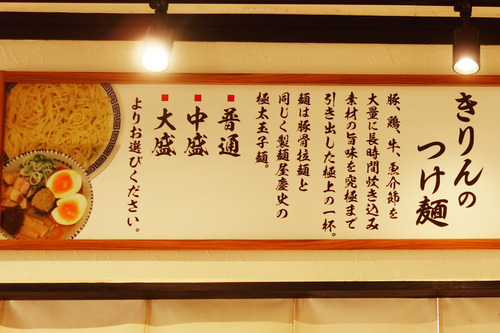 きりんの
つけ麺
豚、鶏、牛、魚介節を
大量に長時間炊き込み
素材の旨味を究極まで
引き出した極上の一杯。
麺は豚骨拉麺と
同じく製麺屋慶史の
極太玉子麺。
■普通
■中盛
■大盛
よりお選びください。